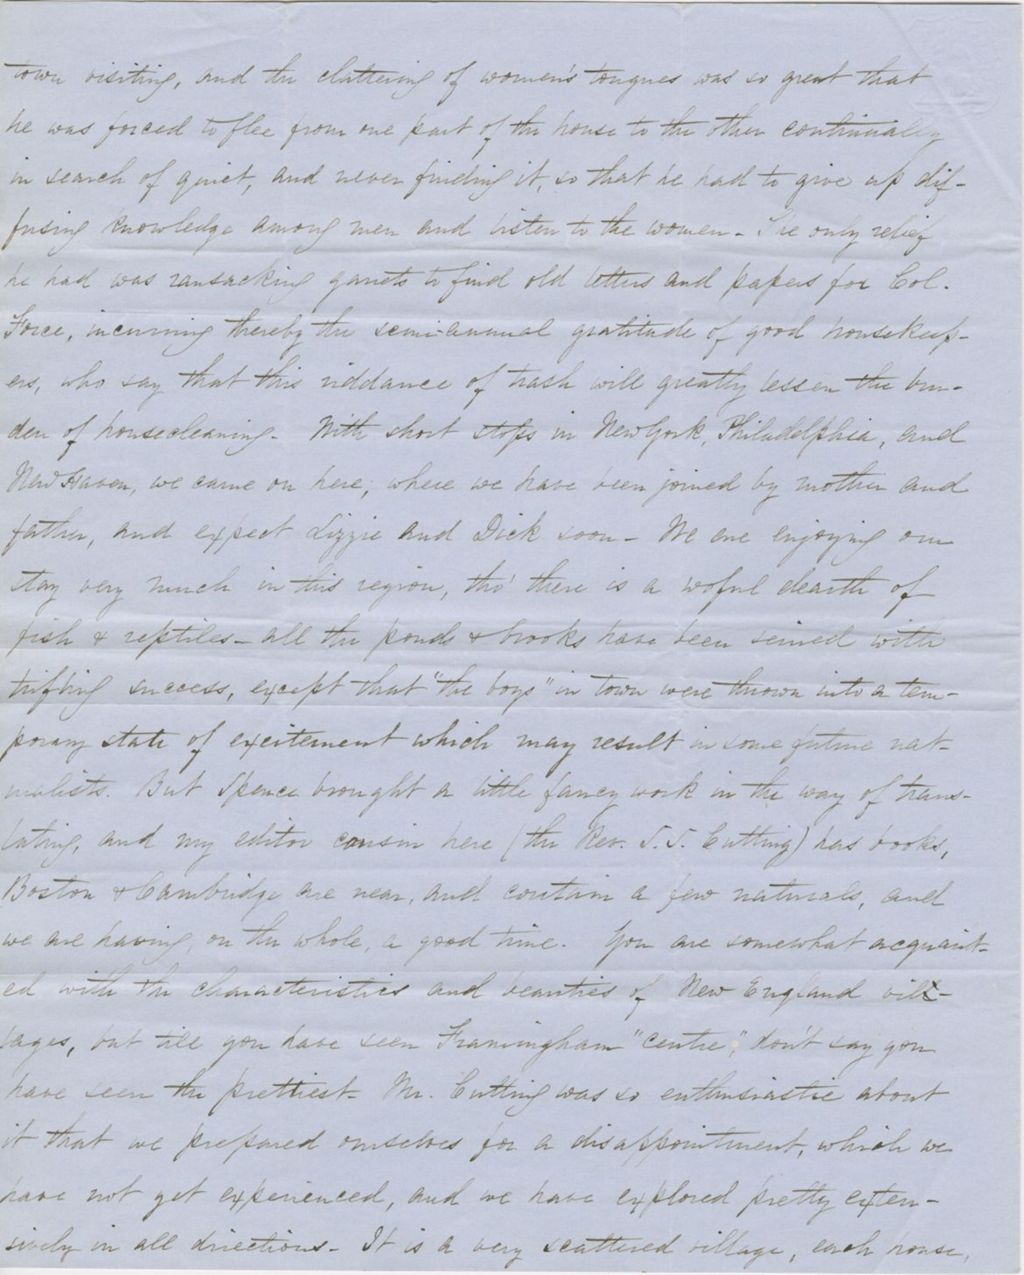 town visiting, and the clattering of women's tongues was so great that
he was forced to flee from one part of the house to the other continually
in search of quiet, and never finding it, so that he had to give up dif-
fusing knowledge among men and listen to the women - The only relief
he had was ransacking garrets to find old letters and papers for Col.
Force, incurring thereby the semi-annual gratitude of good housekeep-
ers, who say that this riddance of trash will greatly lessen the bur-
den of housecleaning - With short stops in New York, Philadelphia, and
New Haven, we came on here, where we have been joined by mother and
father, and expect Lizzie and Dick soon - We are enjoying our
stay very much in this region, tho' there is a woful dearth of
fish & reptiles - all the ponds & brooks have been seined with
trifling success, except that "the boys" in town were thrown into a tem-
porary state of excitement which may result in some future nat-
uralists. But Spence brought a little fancy work in the way of trans-
lating, and my editor cousin here (the Rev. S. S. Cutting) has books,
Boston & Cambridge are near, and contain a few naturals, and
we are having, on the whole, a good time. You are somewhat acquaint-
ed with the characteristics and beauties of New England vil-
lages, but till you have seen Framingham "Centre", don't say you
have seen the prettiest - Mr. Cutting was so enthusiastic about
it that we prepared ourselves for a disappointment, which we
have not yet experienced, and we have explored pretty exten-
sively in all directions - It is a very scattered village, each house,